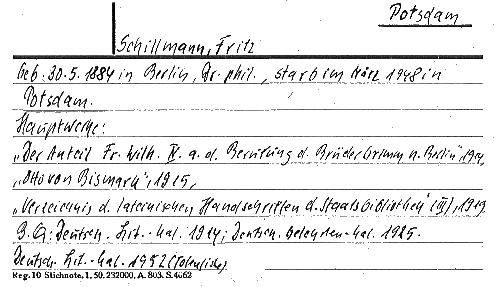 Potsdam
Schillmann, Fritz
Geb. 30.5.1884 in Berlin, Dr. phil., starb im März 1948 in
Potsdam.
Hauptwerke:
"Der Anteil Fr. Wilh. IV. a. d. Berufung d. Brüder Grimm n. Berlin"
"Otto von Bismark", 1915,
"Verzeichnis d. lateinischen Handschriften d. Staatsbibliothek" (III), 1919
B. Q: Deutsch. Lit.-Kal. 1924; Deutsch. Gelehrten-Kal. 1925.
Deutsch. Lit.-Kal. 1952 (Totenliste)
Reg. 10 Stichnote, 1, 50, 232000, A. 803. S. 4062